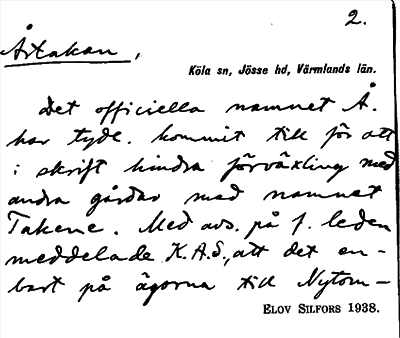 2.
Åtakan,
Köla sn, Jösse hd, Värmlands län.
Det officiella namnet Å.
har tydl. kommit till för att
i skrift hindra förväxling med
andra gårdar med namnet
Takene. Med avs. på f. leden
meddelade K.A.S., att det en-
bart på ägorna till Nytom-
Elov Silfors 1938.